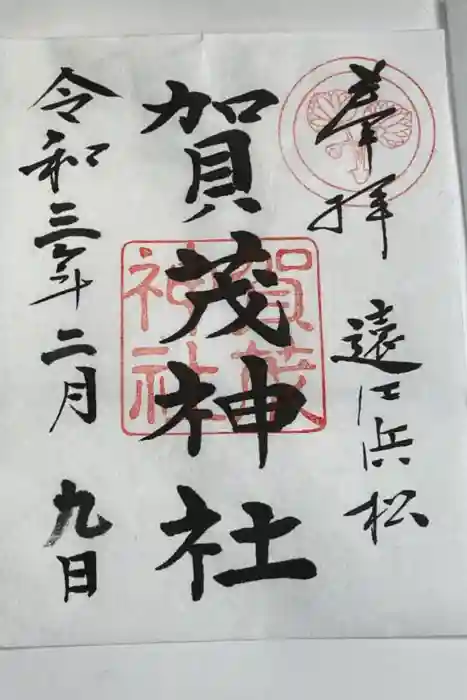 奉拝
遠江浜松
賀茂神社
賀茂
神社
令和三年二月九日